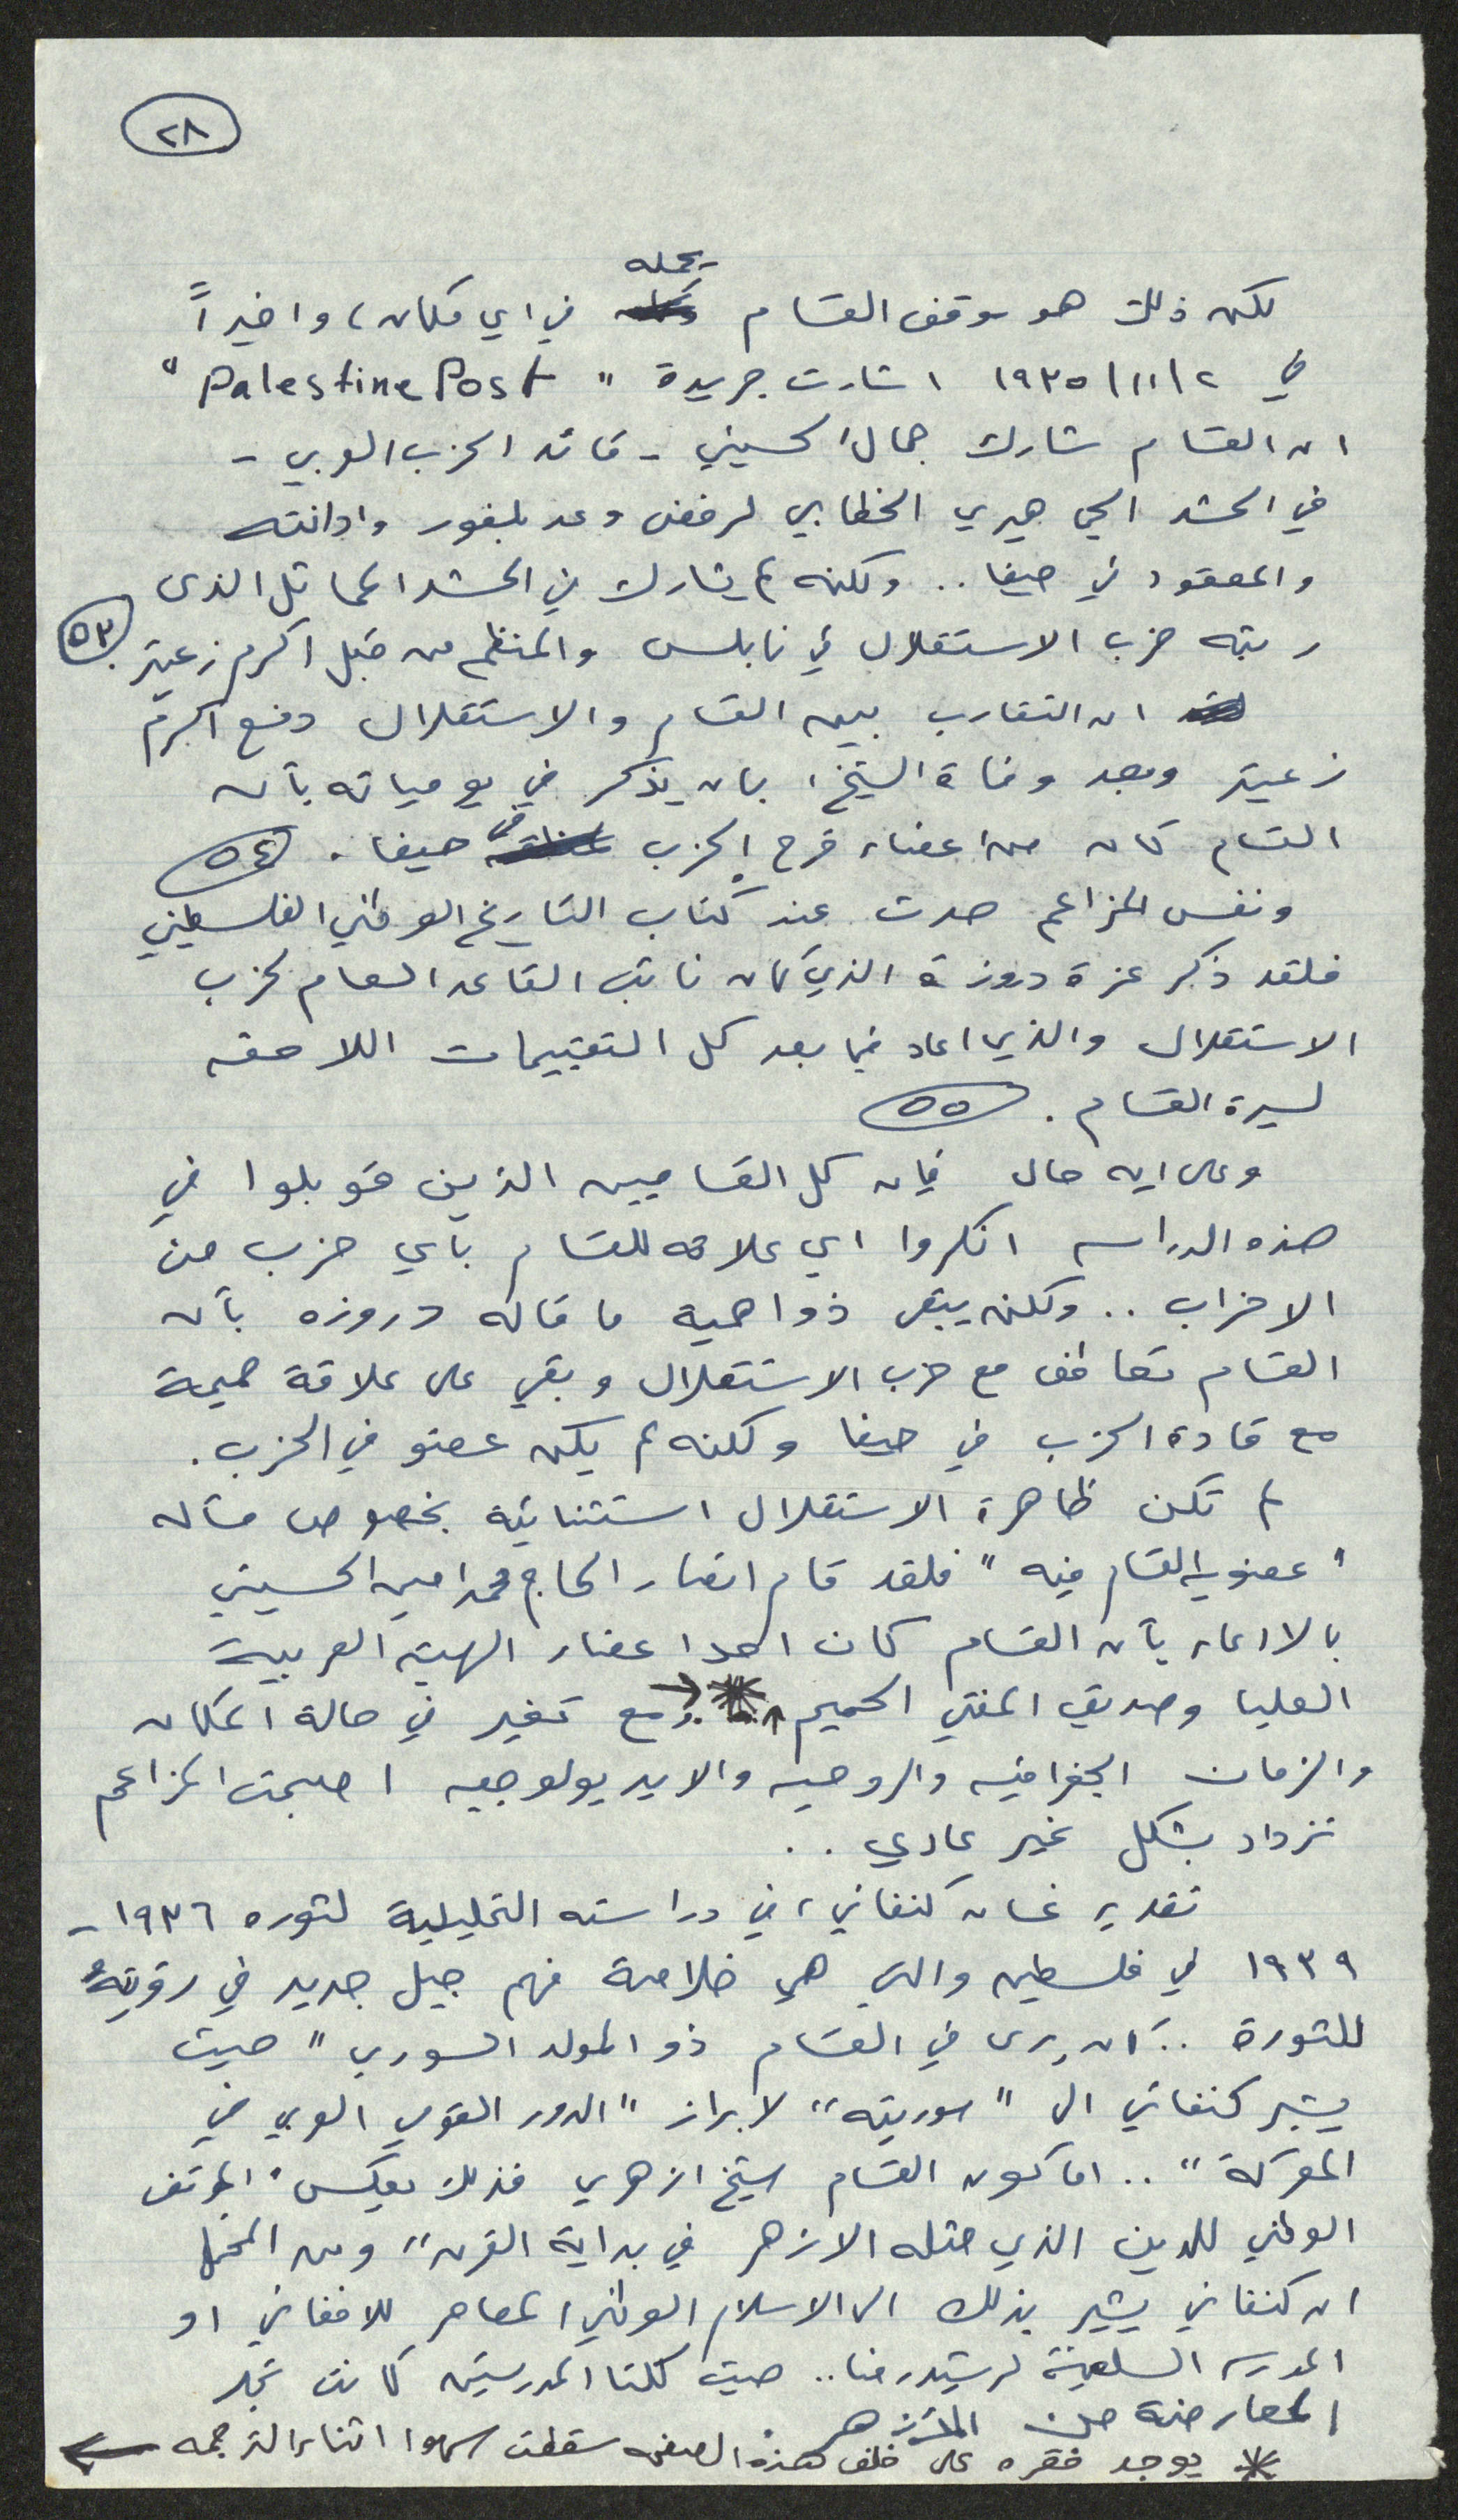 ٢٨
يحمله
لكن ذلك هو موقف القسام في اي مكان، واخيراً
في ٢/١١/١٩٣٥ اشارت جريدة "Palestine Post"
ان القسام شارك جمال الحسيني - قائد الحزب العربي -
في الحشد الجماهيري الخطابي لرفض وعد بلفور وادانته
والمعقود في حيفا .. ولكنه لم يشارك في الحشد المماثل الذى
رتبه حزب الاستقلال في نابلس والمنظم من قبل اكرم زعيتر ٥٣
ان التقارب بين القسام والاستقلال دفع اكرم
زعيتر وبعد وفاة الشيخ، بان يذكر في يومياته بأن
القسام كان من اعضاء فرع الحزب في حيفا. ٥٤
ونفس المزاعم صدرت عند كتاب التاريخ الوطني الفلسطيني
فلقد ذكر عزة دروزة الذي كان نائب القاعد العام لحزب
الاستقلال والذي اعاد فيما بعد كل التقييمات اللاحقه
لسيرة القسام. ٥٥
وعلى ايه حال فان كل القساميين الذين قوبلوا في
هذه الدراسه انكروا اي علاقه للقسام بأي حزب من
الاحزاب .. ولكن يبقى ذو اهمية ما قاله دروزه بأن
القسام تعاطف مع حزب الاستقلال وبقي على علاقة حميمة
مع قادة الحزب في حيفا ولكنه لم يكن عضو في الحزب.
لم تكن ظاهرة الاستقلال استثنائية بخصوص مسأله
"عضوية القسام فيه" فلقد قام انصار الحاج محمد امين الحسيني
بالادعاء بأن القسام كان احد اعضاء الهيئه العربية
العليا وصديق المفتي الحميم * .. مع تغير في حالة المكان
والزمان الجغرافيه والروحيه والايديولوجيه اصبحت المزاعم
تزداد بشكل غير عادي ..
تقدير غسان كنفاني، في دراسته التحليلية لثوره ١٩٣٦ -
١٩٣٩ في فلسطين والتي هي خلاصة فهم جيل جديد في رؤيته
للثورة .. كان يرى في القسام ذو المولد السوري " حيث
يشير كنفاني الى "سوريته" لابراز "الدور القومي العربي في
المعركة" .. اما كون القسام شيخ ازهري فذلك يعكس "الموقف
الوطني للدين الذي مثله الازهر في بداية القرن" ومن المحتمل
ان كنفاني يشير بذلك الى الاسلام الوطني المعاصر للافغاني او
المدرسه السلفية لرشيد رضا .. حيث كلتا المدرستين كانت تجد
المعارضة من الازهر.
* يوجد فقره على خلف هذه الصفحه سقطت سهوا اثناء الترجمه ←